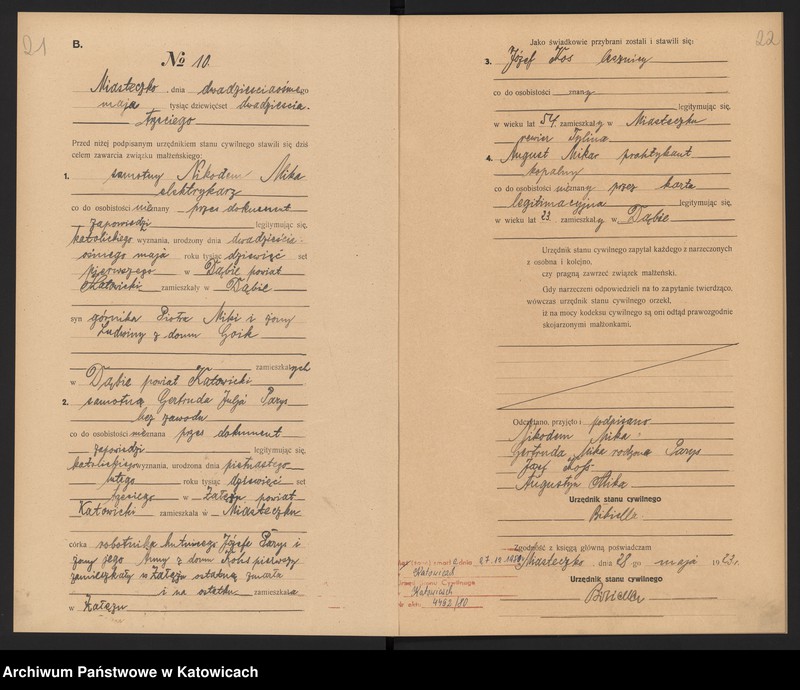 21
B.
№ 10.
Miasteczko, dnia dwudziestegoósmego
maja tysiąc dziewięćset dwudziestego
trzeciego
Przed niżej podpisanym urzędnikiem stanu cywilnego stawili się dziś
celem zawarcia związku małżeńskiego:
1. samotny Nikodem Mika
elektrykarz
co do osobistości nieznany przez dokument
zapowiedzi legitymując się,
katolickiego wyznania, urodzony dnia dwudzieste-
ósmego maja roku tysiąc dziewięć set
pierwszego w Dąbie powiat
Katowicki zamieszkały w Dąbie
syn górnika Piotra Miki i żony
Ludwiny z domu Goik
zamieszkałych
w Dąbie powiat Katowicki
2. samotna Gertruda Julja Parys
bez zawodu
co do osobistości nieznana przez dokument
zapowiedzi legitymując się,
katolickiego wyznania, urodzona dnia piętnastego
lutego roku tysiąc dziewięć set
trzeciego w Załężu powiat
Katowicki zamieszkała w Miasteczku
córka robotnika hutniczego Józefa Parys i
żony jego Anny z domu pierwszy
zamieszkały w Załężu ostatnia zmarła
i na ostatku zamieszkała
w Załężu
22
Jako świadkowie przybrani zostali i stawili się:
3. Józef Kos
co do osobistości znany
legitymując się,
w wieku lat 54, zamieszkały w Miasteczku
4. August Mika praktykant
kopalny
co do osobistości nieznany przez karta
legitimacyjna legitymując się,
w wieku lat 23, zamieszkały w Dąbie
Urzędnik stanu cywilnego zapytał każdego z narzeczonych
z osobna i kolejno,
czy pragną zawrzeć związek małżeński.
Gdy narzeczeni odpowiedzieli na to zapytanie twierdząco,
wówczas urzędnik stanu cywilnego orzekł,
iż na mocy kodeksu cywilnego są oni odtąd prawozgodnie
skojarzonymi małżonkami.
Odczytano, przyjęto i podpisano
Nikodem Mika
Gertruda Mika rodzona Parys
Józef Koss
Augustyn Mika
Urzędnik stanu cywilnego
Bibiella
Zgodność z księgą główną poświadczam
Miasteczko, dnia 28go maja 1923r.
Urzędnik stanu cywilnego
Bibiella
zmarł dnia 27.10.
w Katowicach
Urząd Stanu Cywilnego
Katowicach
Nr aktu 4462/80
Archiwum Państwowe w Katowicach